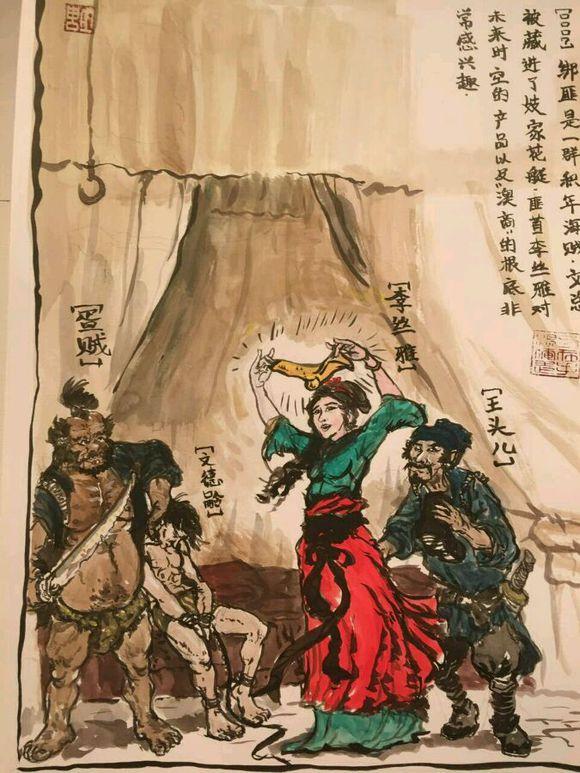 绑匪是一群积年海贼·文总
被藏进了妓家花艇·匪首李丝雅对
未来时空的产品以及"澳商"的根底非
常感兴趣·
[李丝雅]
[王头儿]
[疍贼]
[文德嗣]